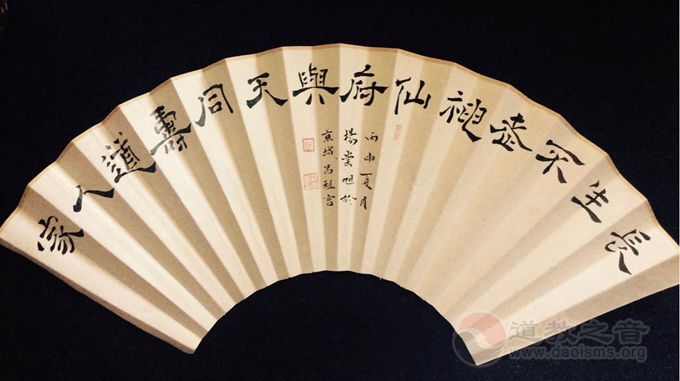 長生不老神仙府與天同壽道人家
丙申夏月
楊崇旭於
京城呂祖宮
道教之音
www.daoisms.org